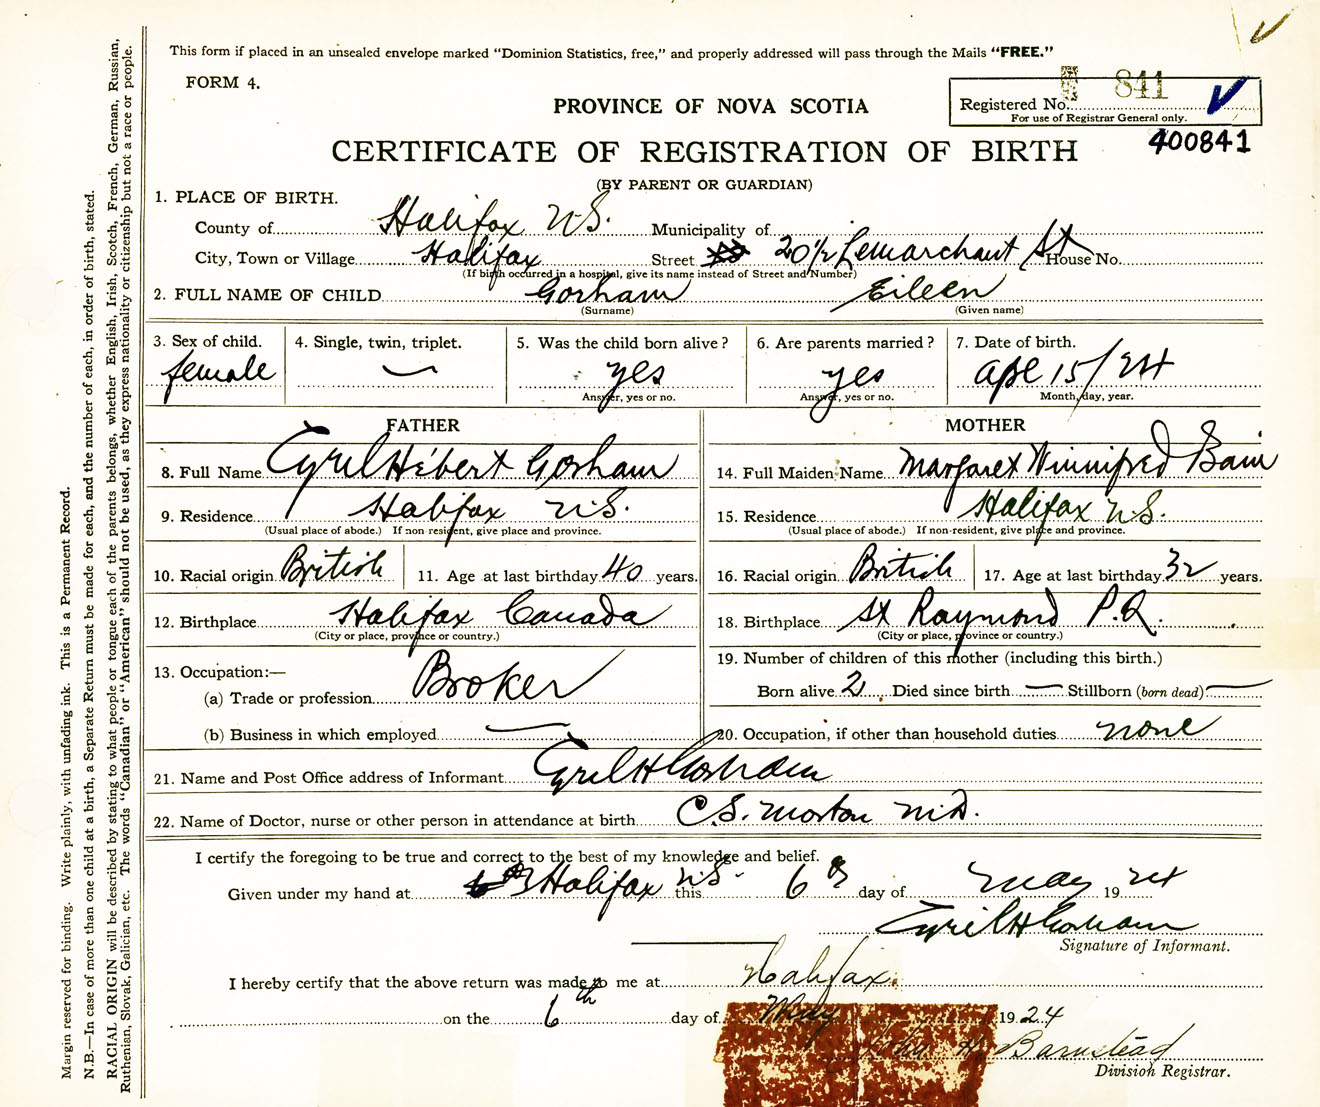 This form if placed in an unsealed envelope marked "Dominion Statistics, free," and properly addressed will pass through the Mails "FREE."
FORM 4.
841
Registered No.
For use of Registrar General only.
400841
PROVINCE OF NOVA SCOTIA
CERTIFICATE OF REGISTRATION OF BIRTH
(BY PARENT OR GUARDIAN)
1. PLACE OF BIRTH.
County of Halifax N.S. Municipality of
City, Town or Village Halifax Street 20½ Lemarchant St House No.
(If birth occurred in a hospital, give its name instead of Street and Number)
2. FULL NAME OF CHILD Gorham Eileen
(Surname) (Given name)
3. Sex of child. 4. Single, twin, triplet. 5. Was the child born alive? 6. Are parents married? 7. Date of birth.
female — yes yes Apl 15/24
Answer, yes or no. Answer, yes or no. Month, day, year.
FATHER MOTHER
8. Full Name Cyril Hebert Gorham 14. Full Maiden Name Margaret Winnifred Bain
9. Residence Halifax N.S. 15. Residence Halifax N.S.
(Usual place of abode.) If non-resident, give place and province. (Usual place of abode.) If non-resident, give place and province.
10. Racial origin British 11. Age at last birthday 40 years. 16. Racial origin British 17. Age at last birthday 32 years.
12. Birthplace Halifax Canada 18. Birthplace St Raymond P.Q.
(City or place, province or country.) (City or place, province or country.)
13. Occupation:— 19. Number of children of this mother (including this birth.)
(a) Trade or profession Broker Born alive 2 Died since birth — Stillborn (born dead) —
(b) Business in which employed — 20. Occupation, if other than household duties none
21. Name and Post Office address of Informant Cyril H Gorham
22. Name of Doctor, nurse or other person in attendance at birth C.S. Morton M.D.
I certify the foregoing to be true and correct to the best of my knowledge and belief.
Given under my hand at Halifax N.S. this 6 day of May 1924
Cyril H Gorham
Signature of Informant.
I hereby certify that the above return was made to me at Halifax.
on the 6th day of May 1924
John H. Barnstead
Division Registrar.
Margin reserved for binding. Write plainly, with unfading ink. This is a Permanent Record.
N.B.—In case of more than one child at a birth, a Separate Return must be made for each, and the number of each, in order of birth, stated.
RACIAL ORIGIN will be described by stating to what people or tongue each of the parents belongs, whether English, Irish, Scotch, French, German, Russian,
Ruthenian, Slovak, Galician, etc. The words "Canadian" or "American" should not be used, as they express nationality or citizenship but not a race or people.